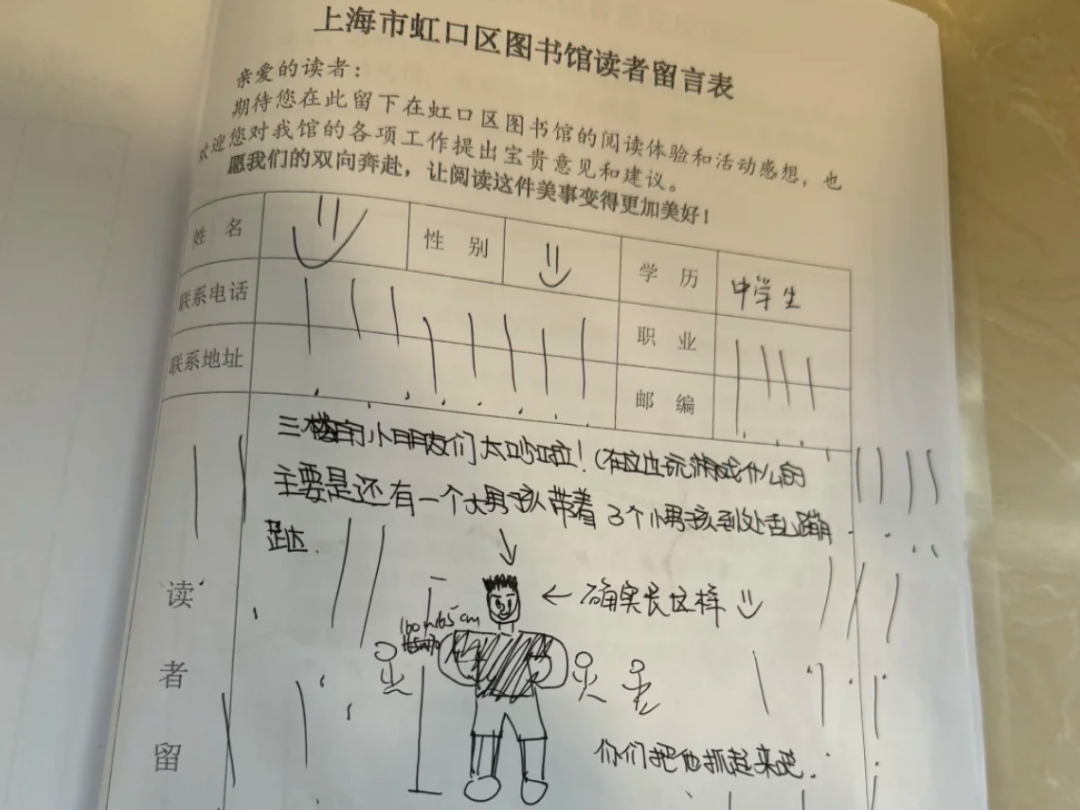 上海市虹口区图书馆读者留言表
亲爱的读者：
期待您在此留下在虹口区图书馆的阅读体验和活动感想，也
欢迎您对我馆的各项工作提出宝贵意见和建议。
愿我们的双向奔赴，让阅读这件美事变得更加美好！
姓 名 性 别 学 历 中学生
联系电话 职 业
联系地址 邮 编
三楼的小朋友们太吵啦！(在这边玩游戏什么的
主要是还有一个大男孩带着3个小男孩到处乱蹦
跶.
← 确实长这样
160~165cm
你们把他抓起来吧.
读
者
留